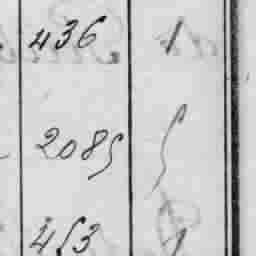 436 1
2085 5
453 1